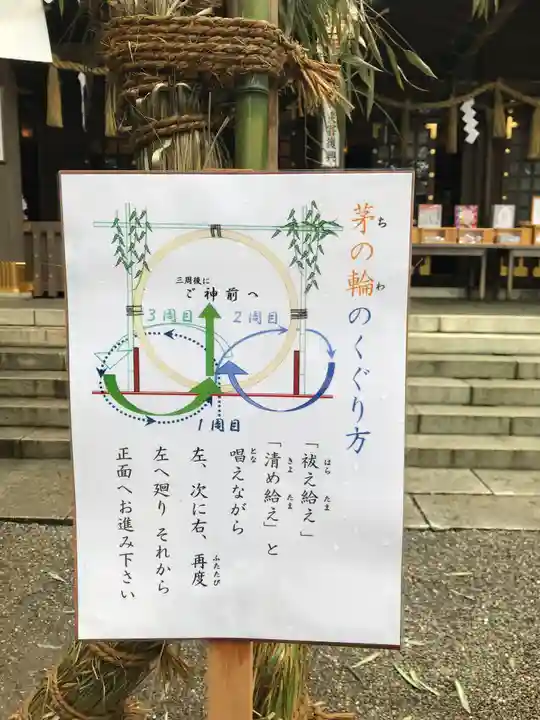 茅の輪のくぐり方
ちわ
三周後に
ご神前へ
3周目
2周目
1周目
「祓え給え」
はらたま
「清め給え」と
きよたま
唱えながら
とな
左、次に右、再度
ふたたび
左へ廻り それから
正面へお進み下さい